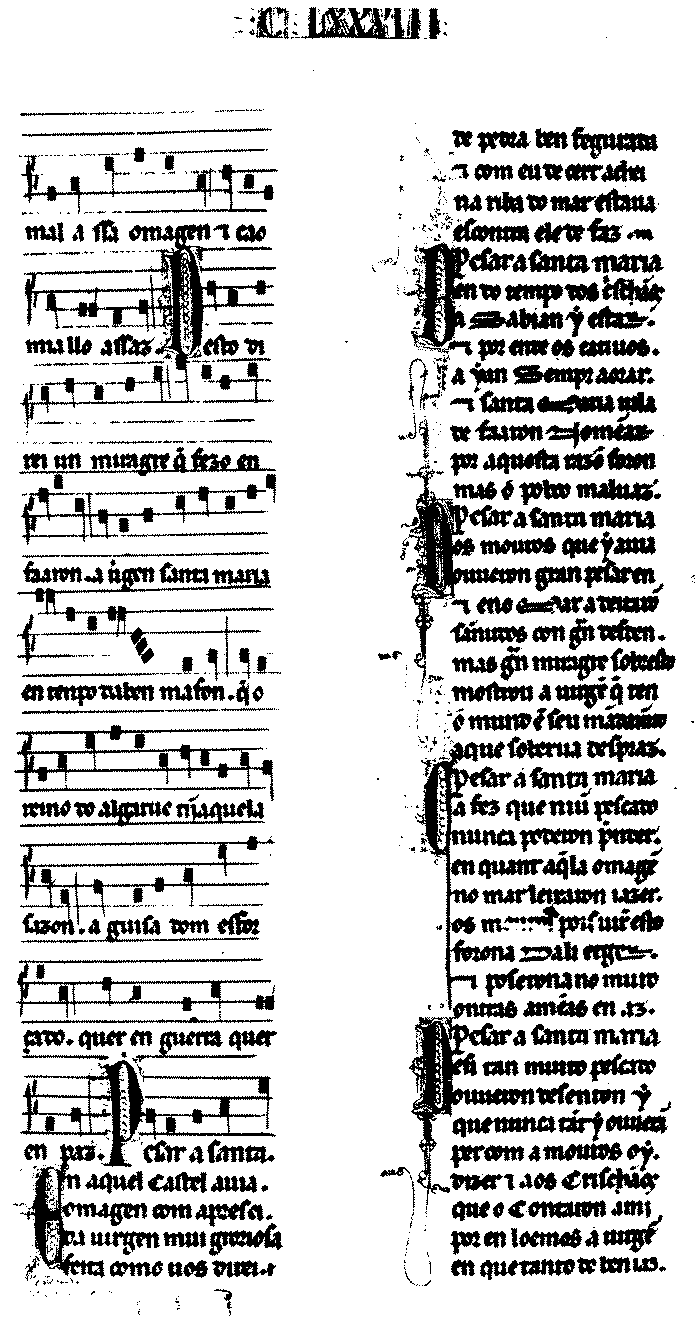 C LXXXIII
mal a ssa omagen ⁊ cao
miallo assaz. Desto di
rei un miragre q̃ fezo en
faaron. a uirgen santa maria
en tenpo
reino do algarue niaquela
sazon. a guisa dom esfor
çado. quer en guerra quer
en paz. Pesar a santa.
En aquel Castel auia.
omagen com apresi.
da uirgen mui groriosa
feita como uos direi. ⁊
de pedra ben fegurada
⁊ com eu de cert achei
na riba do mar estaua
escontra ele de faz
Pesar a santa maria
en do tempo dos
a
⁊ por ende os catiuos.
a yan Sempr aorar.
⁊ santa uila
de faaron
por aquesta razõ foron
mas o poboo maluaz.
Pesar a santa maria
os mouros que y auia
ouueron gran pesar en
⁊ eno mar a deitaron
sannudos con gñ desden.
mas gñ miragre sobresto
mostrou a uirgẽ q̃ ten
o mundo ẽ seu
aque soberuia despraz.
Pesar a santa maria
a fez que niũ pescado
nunca poderon prender.
en quant aq̃la omagẽ
no mar leixaron iazer.
os
forona dali erger
⁊ poserona no muro
ontras amẽas en az.
Pesar a santa maria
esi tan muito pescado
ouueron desenton y
que nunca tãt y ouuerã
per com a mouros oy.
dizer ⁊ aos Crischãos
que o Contaron ami
por en loemos a uirgẽ
en que tanto de ben iaz.